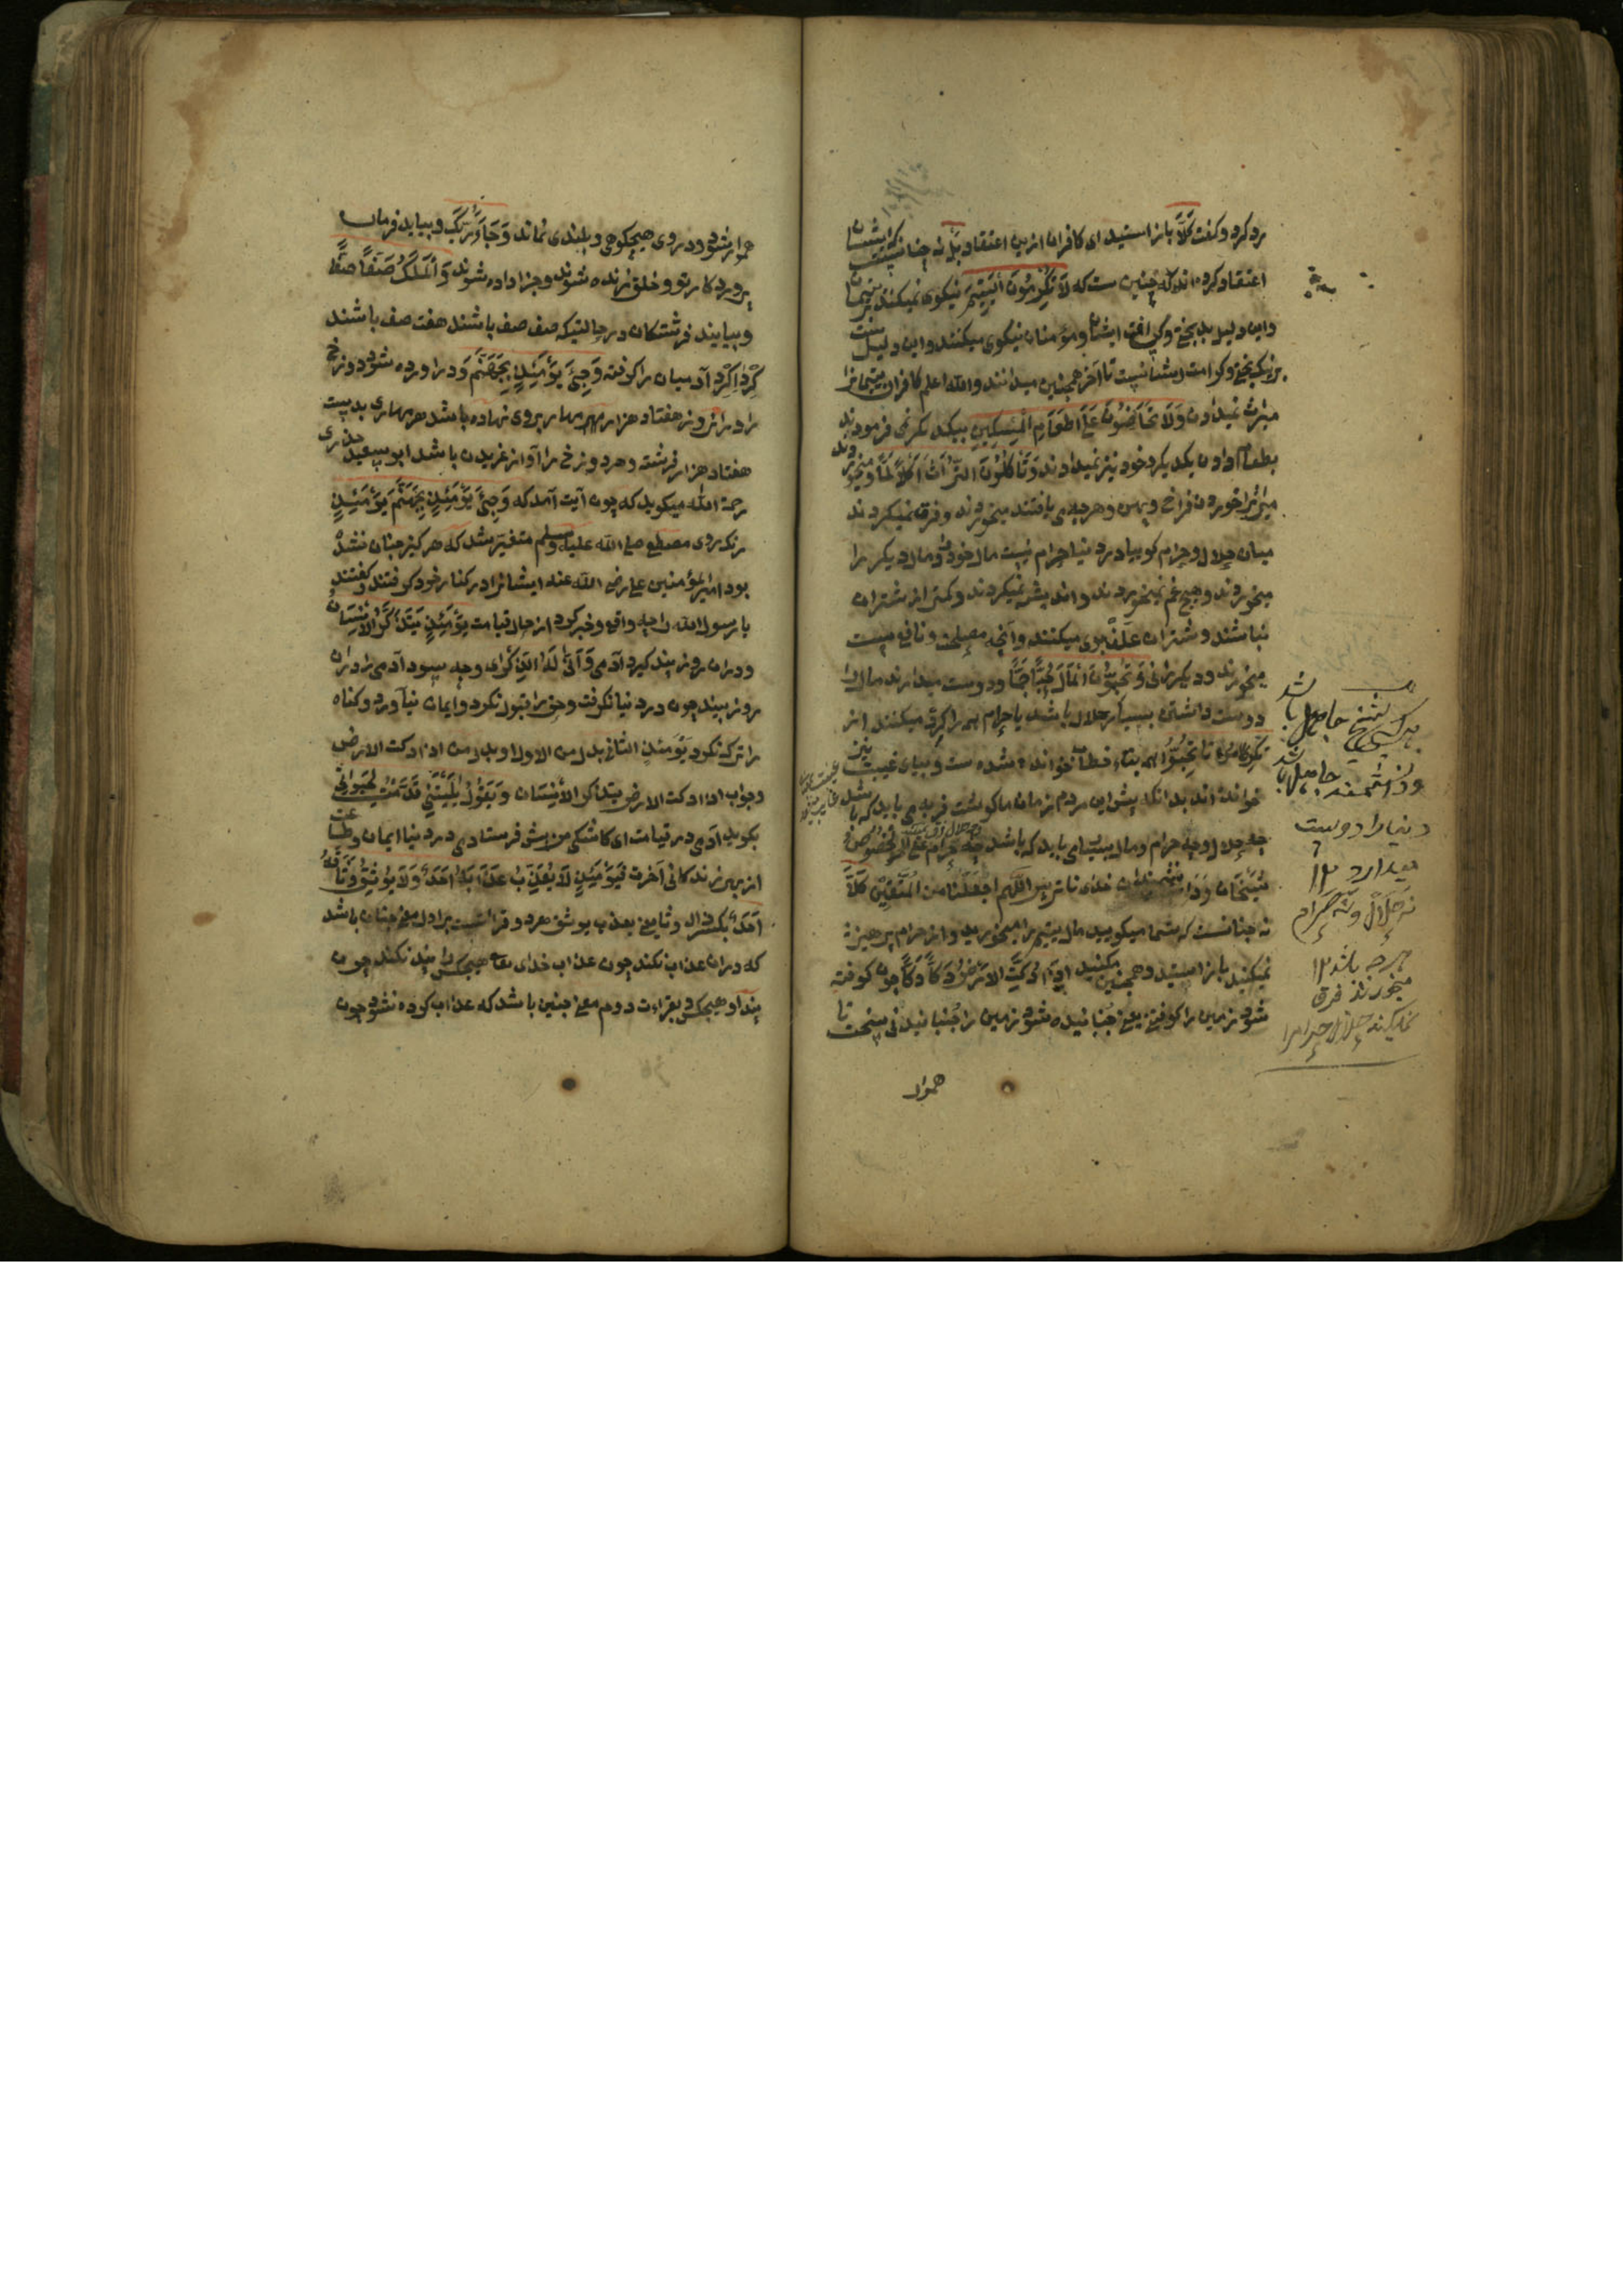 رد کرد و کفت كَلَّا باز استید ای کافران ازین اعتقاد بَلْ نه چنانست که ایشان
اعتقاد کرده اند که چنین ست که لَا تُكْرِمُونَ الْيَتِيمَ نیکوی نمیکنند یتیمان
و این دلیل بدبختی و ایشان و مؤمنان نیکوی میکنند و این دلیل
نیک بختی و کرامت ایشانست تا آخر همچنین میدانند والله اعلم کافران یتیمانرا
میراث نمیدادن وَلَا تَحَاضُّونَ عَلَى طَعَامِ الْمِسْكِينِ بیکدیکر نمی فرمودند
بطعام دادن یکدیکر خود نیز نمیدادند وَتَأْكُلُونَ التُّرَاثَ أَكْلًا لَمًّا و میخورند
میراثرا خوردن فراخ و هرچه می یافتند میخوردند و فرق نمیکردند
میان حلال و حرام کو بیا در دنیا حرام نیست مال خود و مال دیکر را
میخوردند و هیچ غم نمیخوردند و اندیشه نمیکردند و کمتر از شتران
نباشند و شتران علف بوی میکنند و آنچه مصلحت و نافع ست
میخورند و دیکر وَتُحِبُّونَ الْمَالَ حُبًّا جَمًّا و دوست میدارند مال را
دوست داشتن بسیار حلال باشد یا حرام همه را میکنند از
تُكْرِمُونَ تا تُحِبُّونَ همه بتاء خطاب خوانده شده ست و بیای غیبت نیز
خوانده اند بدانکه پیش این مردم زمان ما کوشت فربه می باید که باشد
چه حلال و چه حرام و مال بسیار می باید که باشد چه حلال چه حرام علی الخصوص
شیخان و دانشمندان خدای ناترس اللهم اجعلنا من المتقین كَلَّا
نه چنانست که شما میکویید مال یتیم را میخورید و از حرام پرهیز
نمیکنید باز ایستید و همچنین مکنید إِذَا دُكَّتِ الْأَرْضُ دَكًّا دَكًّا چون کوفته
شود زمین را کوفتنی یعنی جنبانیده شود زمین را جنبانیدنی سخت تا
هموار
هر کسی شیخ جاهل باشد
و دانشمند جاهل باشد
دنیا را دوست
میدارد ۱۲
نه حلال و نه حرام
هرچه باشد ۱۲
میخورند فرق
نمیکنند حلال حرامرا
هموار شود و در وی هیچ کوهی و بلندی نماند وَجَاءَ رَبُّكَ و بیاید فرمان
پروردکار تو و خلق زنده شوند و جزا داده شوند وَالْمَلَكُ صَفًّا صَفًّا
و بیایند فرشتکان در حالتیکه صف صف باشند هفت صف باشند
کرداکرد آدمیان را کرفته وَجِيءَ يَوْمَئِذٍ بِجَهَنَّمَ و در آورده شود دوزخ
را در آن روز هفتاد هزار مهار بروی نهاده باشد هر مهاری بدست
هفتاد هزار فرشته و مر دوزخ را آواز غریدن باشد ابو سعید خدری
رحمة الله میکوید که چون آیت آمد که وَجِيءَ يَوْمَئِذٍ بِجَهَنَّمَ يَوْمَئِذٍ
رنک روی مصطفی صلی الله علیه وسلم متغیر شد که هرکیز چنان نشده
بود امیرالمؤمنین علی رضی الله عنه ایشانرا در کنار خود کرفتند و کفتند
یا رسول الله را چه واقع و خبر کرد از حال قیامت يَوْمَئِذٍ يَتَذَكَّرُ الْإِنْسَانُ
و در آن روز پند کیرد آدمی وَأَنَّى لَهُ الذِّكْرَى و چه سود آدمی را در آن
روز پند چون در دنیا نکرفت و حق را قبول نکرد و ایمان نیاورد و کناه
را ترک نکرد يَوْمَئِذٍ الثانی بدل من الاول او بدل من اذا دکت الارض
و جواب اذا دکت الارض یتذکر الانسان و يَقُولُ يَا لَيْتَنِي قَدَّمْتُ لِحَيَاتِي
بکوید آدمی در قیامت ای کاشکی من پیش فرستادمی در دنیا ایمان و طاعت
از بهر زندکانی آخرت فَيَوْمَئِذٍ لَا يُعَذِّبُ عَذَابَهُ أَحَدٌ وَلَا يُوثِقُ وَثَاقَهُ
أَحَدٌ بکسر ذال و ثا یعنی یعذب یوثق هر دو قرائتست بر اول معنی چنان باشد
که در آن عذاب نکند چون عذاب خدای تعالی هیچکس را و بند نکند چون
بند او هیچکس و بقراءت دوم معنی چنین باشد که عذاب کرده نشود چون